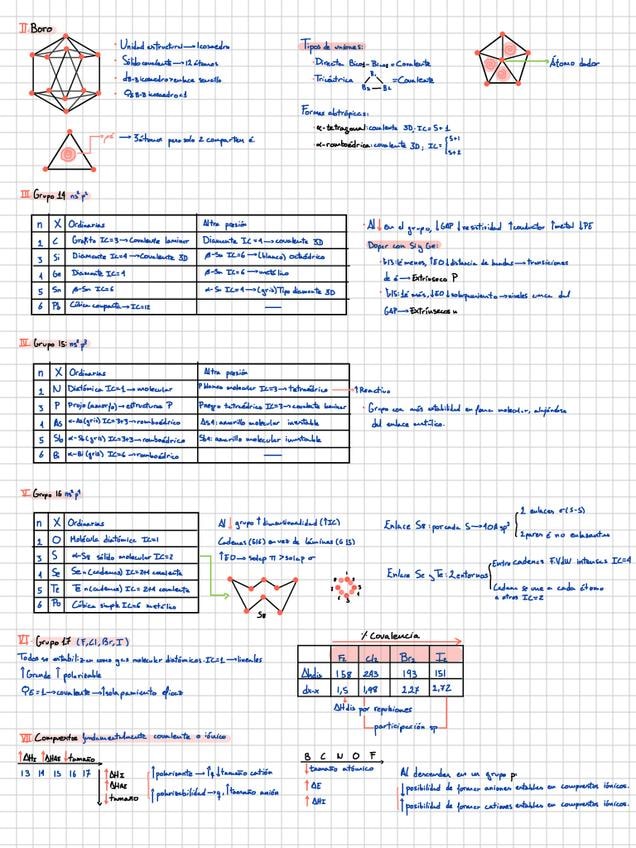 II. Boro
· Unidad estructural → Icosaedro
· Sólido covalente → 12 átomos
· dB-B icosaedro > enlace sencillo
B-B icosaedro < 1
→ 3 átomos pero solo 2 comparten é
Tipos de uniones:
· Directa Bicos - Bicos = Covalente
· Tricéntrica = Covalente
B1
B2 — B3
Átomo dador
Formas alotrópicas:
· α-tetragonal: covalente 3D; IC = 5+1
· α-romboédrica: covalente 3D; IC =
5+1
5+2
III. Grupo 14 ns²p²
n X Ordinarias Altra presión
2 C Grafito IC=3 → Covalente laminar Diamante IC=4 → covalente 3D
3 Si Diamante IC=4 → Covalente 3D β-Sn IC=6 → (blanco) octédrico
4 Ge Diamante IC=4 β-Sn IC=6 → metálico
5 Sn β-Sn IC=6 α-Sn IC=4 → (gris) Tipo diamante 3D
6 Pb Cúbica compacta → IC=12 —
· Al ↓ en el grupo, ↓GAP ↓resitividad ↑conductor ↑metal ↓PE
Dopar con Si y Ge:
é → Extrínseco P
GAP → Extrínseco n
IV. Grupo 15: ns²p³
n X Ordinarias Altra presión
2 N Diatómica IC=1 → molecular P blanco molecular IC=3 → tetraédrico → ↑Reactivo
3 P P rojo (amorfo) → estructura P P negro tetraédrico IC=3 → covalente laminar
4 As α-As (gris) IC=3+3 → romboédrico As4: amarillo molecular inestable
5 Sb α-Sb (gris) IC=3+3 → romboédrico Sb4: amarillo molecular inestable
6 Bi α-Bi (gris) IC=6 → romboédrico —
· Grupo con más estabilidad en forma molecular, alejándose
del enlace metálico.
V. Grupo 16 ns²p⁴
n X Ordinarias
2 O Molécula diatómica IC=1
3 S α-S8 sólido molecular IC=2
4 Se Se n (cadenas) IC=2+4 covalente
5 Te Te n (cadenas) IC = 2+4 covalente
6 Po Cúbica simple IC=6 metálico
Al ↓ grupo ↑ dimensionalidad (↑IC)
Cadenas (G16) en vez de láminas (G15)
↑EO → solap π > solap σ
S8
Enlace S8: por cada S →
2 enlaces σ (S-S)
2 pares é no enlazantes
Enlace Se y Te: 2 entornos
Entre cadenas F.VdW intensas IC=4
Cadena se une a cada átomo
a otros IC=2
VI. Grupo 17 (F, Cl, Br, I)
Todos se estabilizan como gas molecular diatómicos. IC=1 → lineales
↑ Grande ↑ polarizable
E=1 → covalente → ↑solapamiento eficaz
% Covalencia
F2 Cl2 Br2 I2
ΔHdis 158 243 193 151
dx-x 1,5 1,98 2,27 2,72
ΔHdis por repulsiones
participación sp
VII. Compuestos fundamentalmente covalente o iónico.
↑ΔHI ↑ΔHAE ↓tamaño
13 14 15 16 17
↑ΔHI
↑ΔHAE
↓tamaño
↑polarizante → ↑q, ↓tamaño catión
↑polarizabilidad → q, ↑tamaño anión
B C N O F
↓tamaño atómico
↑ΔE
↑ΔHI
Al descender en un grupo p:
↓posibilidad de formar aniones estables en compuestos iónicos.
↑posibilidad de formar cationes estables en compuestos iónicos.